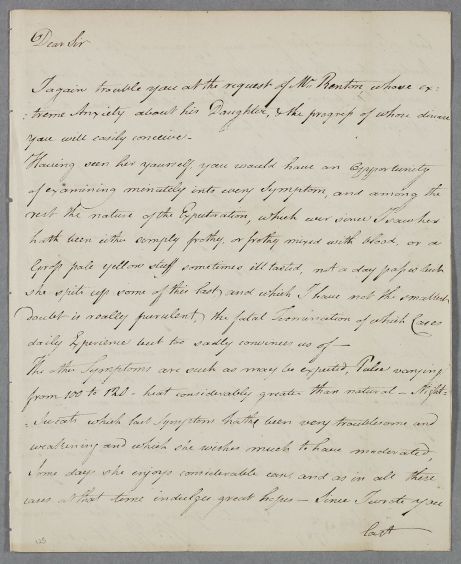 Dear Sir
I again trouble you at the request of Mr Renton, whose ex:
:treme Anxiety about his Daughter, & the progress of whose disease
you will easily conceive -
Having seen her yourself, you would have an Opportunity
of examining minutely into every Symptom, and among the
rest the nature of the Expectoration, which ever since I saw her
hath been either simply frothy, or frothy mixed with blood, or a
Gross pale yellow stuff sometimes ill tasted, not a day passes but
she spits up some of this last, and which I have not the smallest
doubt is really purulent, the fatal Termination of which Cases
daily Experience but too sadly convinces us of -
The other Symptoms are such as may be expected, Pulse varying
from 100 to 120 - heat considerably greater than natural - Night-
-Sweats which last Symptom hath been very troublesome and
weakening and which she wishes much to have moderated,
some days she enjoys considerable ease, and as in all these
cases at that time indulges great hopes - Since I wrote you
last
125